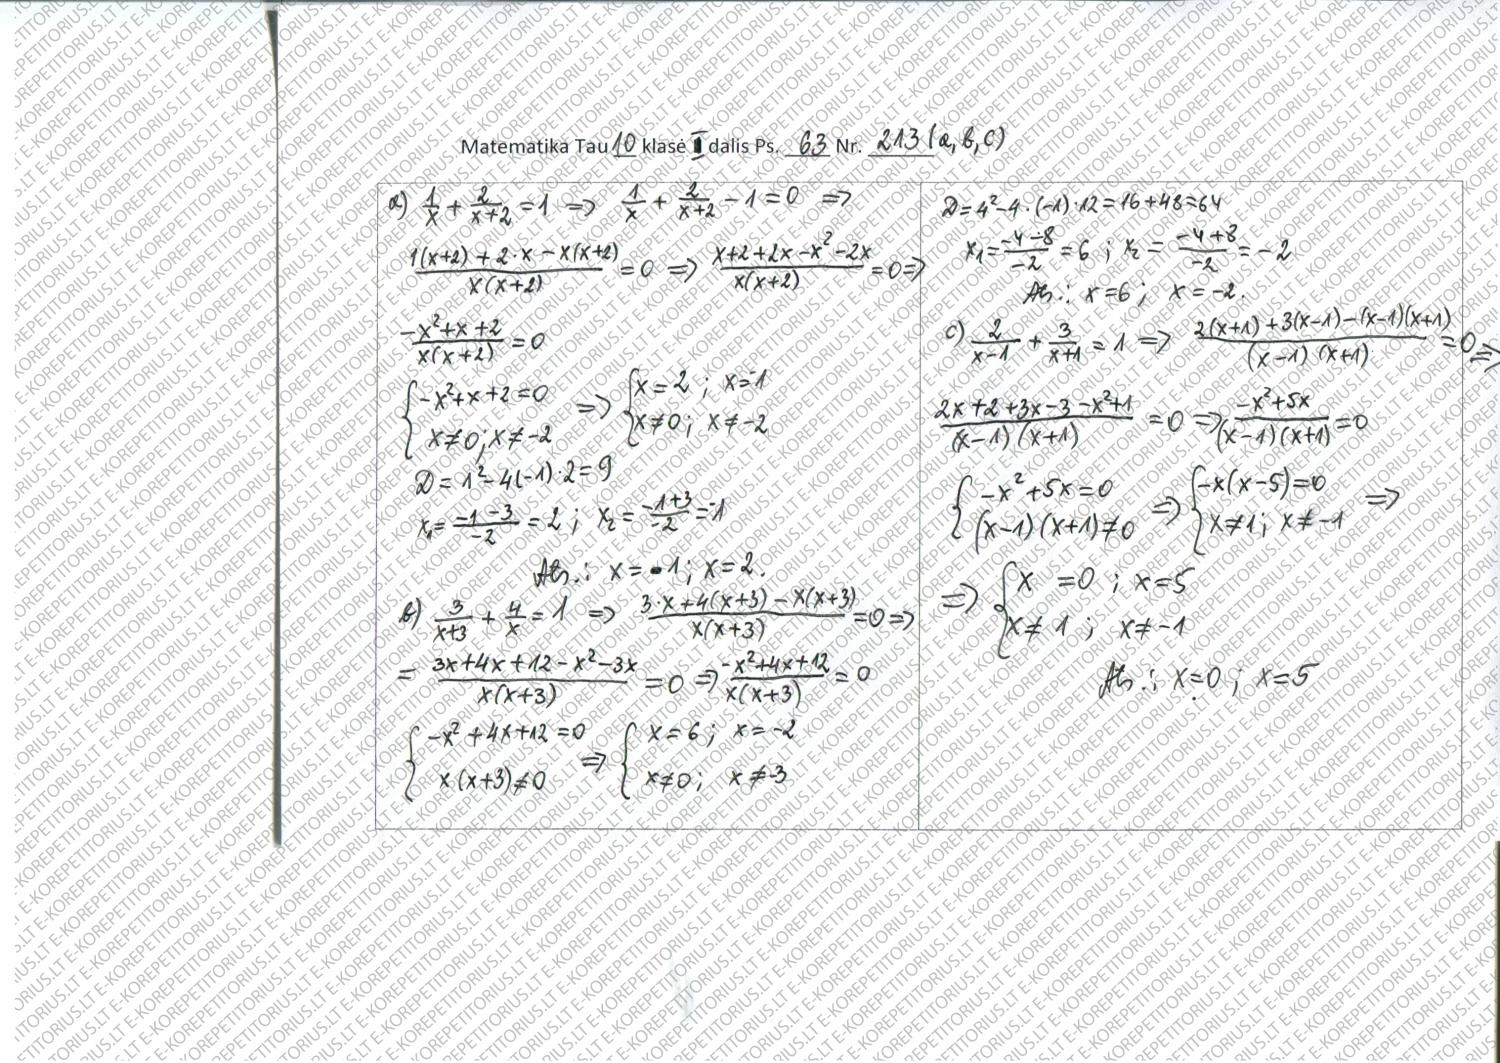 Matematika Tau 10 klasė I dalis Ps. 63 Nr. 213 (a, b, c)
a) 1/x + 2/(x+2) = 1 => 1/x + 2/(x+2) - 1 = 0 =>
(1(x+2) + 2·x - x(x+2))/(x(x+2)) = 0 => (x+2+2x-x²-2x)/(x(x+2)) = 0 =>
(-x²+x+2)/(x(x+2)) = 0
{ -x²+x+2=0 => { x=2; x=-1
x≠0; x≠-2 x≠0; x≠-2
D = 1²-4(-1)·2=9
x₁ = (-1-3)/(-2) = 2; x₂ = (-1+3)/(-2) = -1
Ats.: x=-1; x=2.
b) 3/(x+3) + 4/x = 1 => (3·x+4(x+3)-x(x+3))/(x(x+3)) = 0 =>
= (3x+4x+12-x²-3x)/(x(x+3)) = 0 => (-x²+4x+12)/(x(x+3)) = 0
{ -x²+4x+12=0 => { x=6; x=-2
x(x+3)≠0 x≠0; x≠-3
D=4²-4·(-1)·12=16+48=64
x₁ = (-4-8)/(-2) = 6; x₂ = (-4+8)/(-2) = -2
Ats.: x=6; x=-2.
c) 2/(x-1) + 3/(x+1) = 1 => (2(x+1)+3(x-1)-(x-1)(x+1))/((x-1)(x+1)) = 0 =>
(2x+2+3x-3-x²+1)/((x-1)(x+1)) = 0 => (-x²+5x)/((x-1)(x+1)) = 0
{ -x²+5x=0 => { -x(x-5)=0 =>
(x-1)(x+1)≠0 x≠1; x≠-1
=> { x=0; x=5
x≠1; x≠-1
Ats.: x=0; x=5
E-KOREPETITORIUS.LT